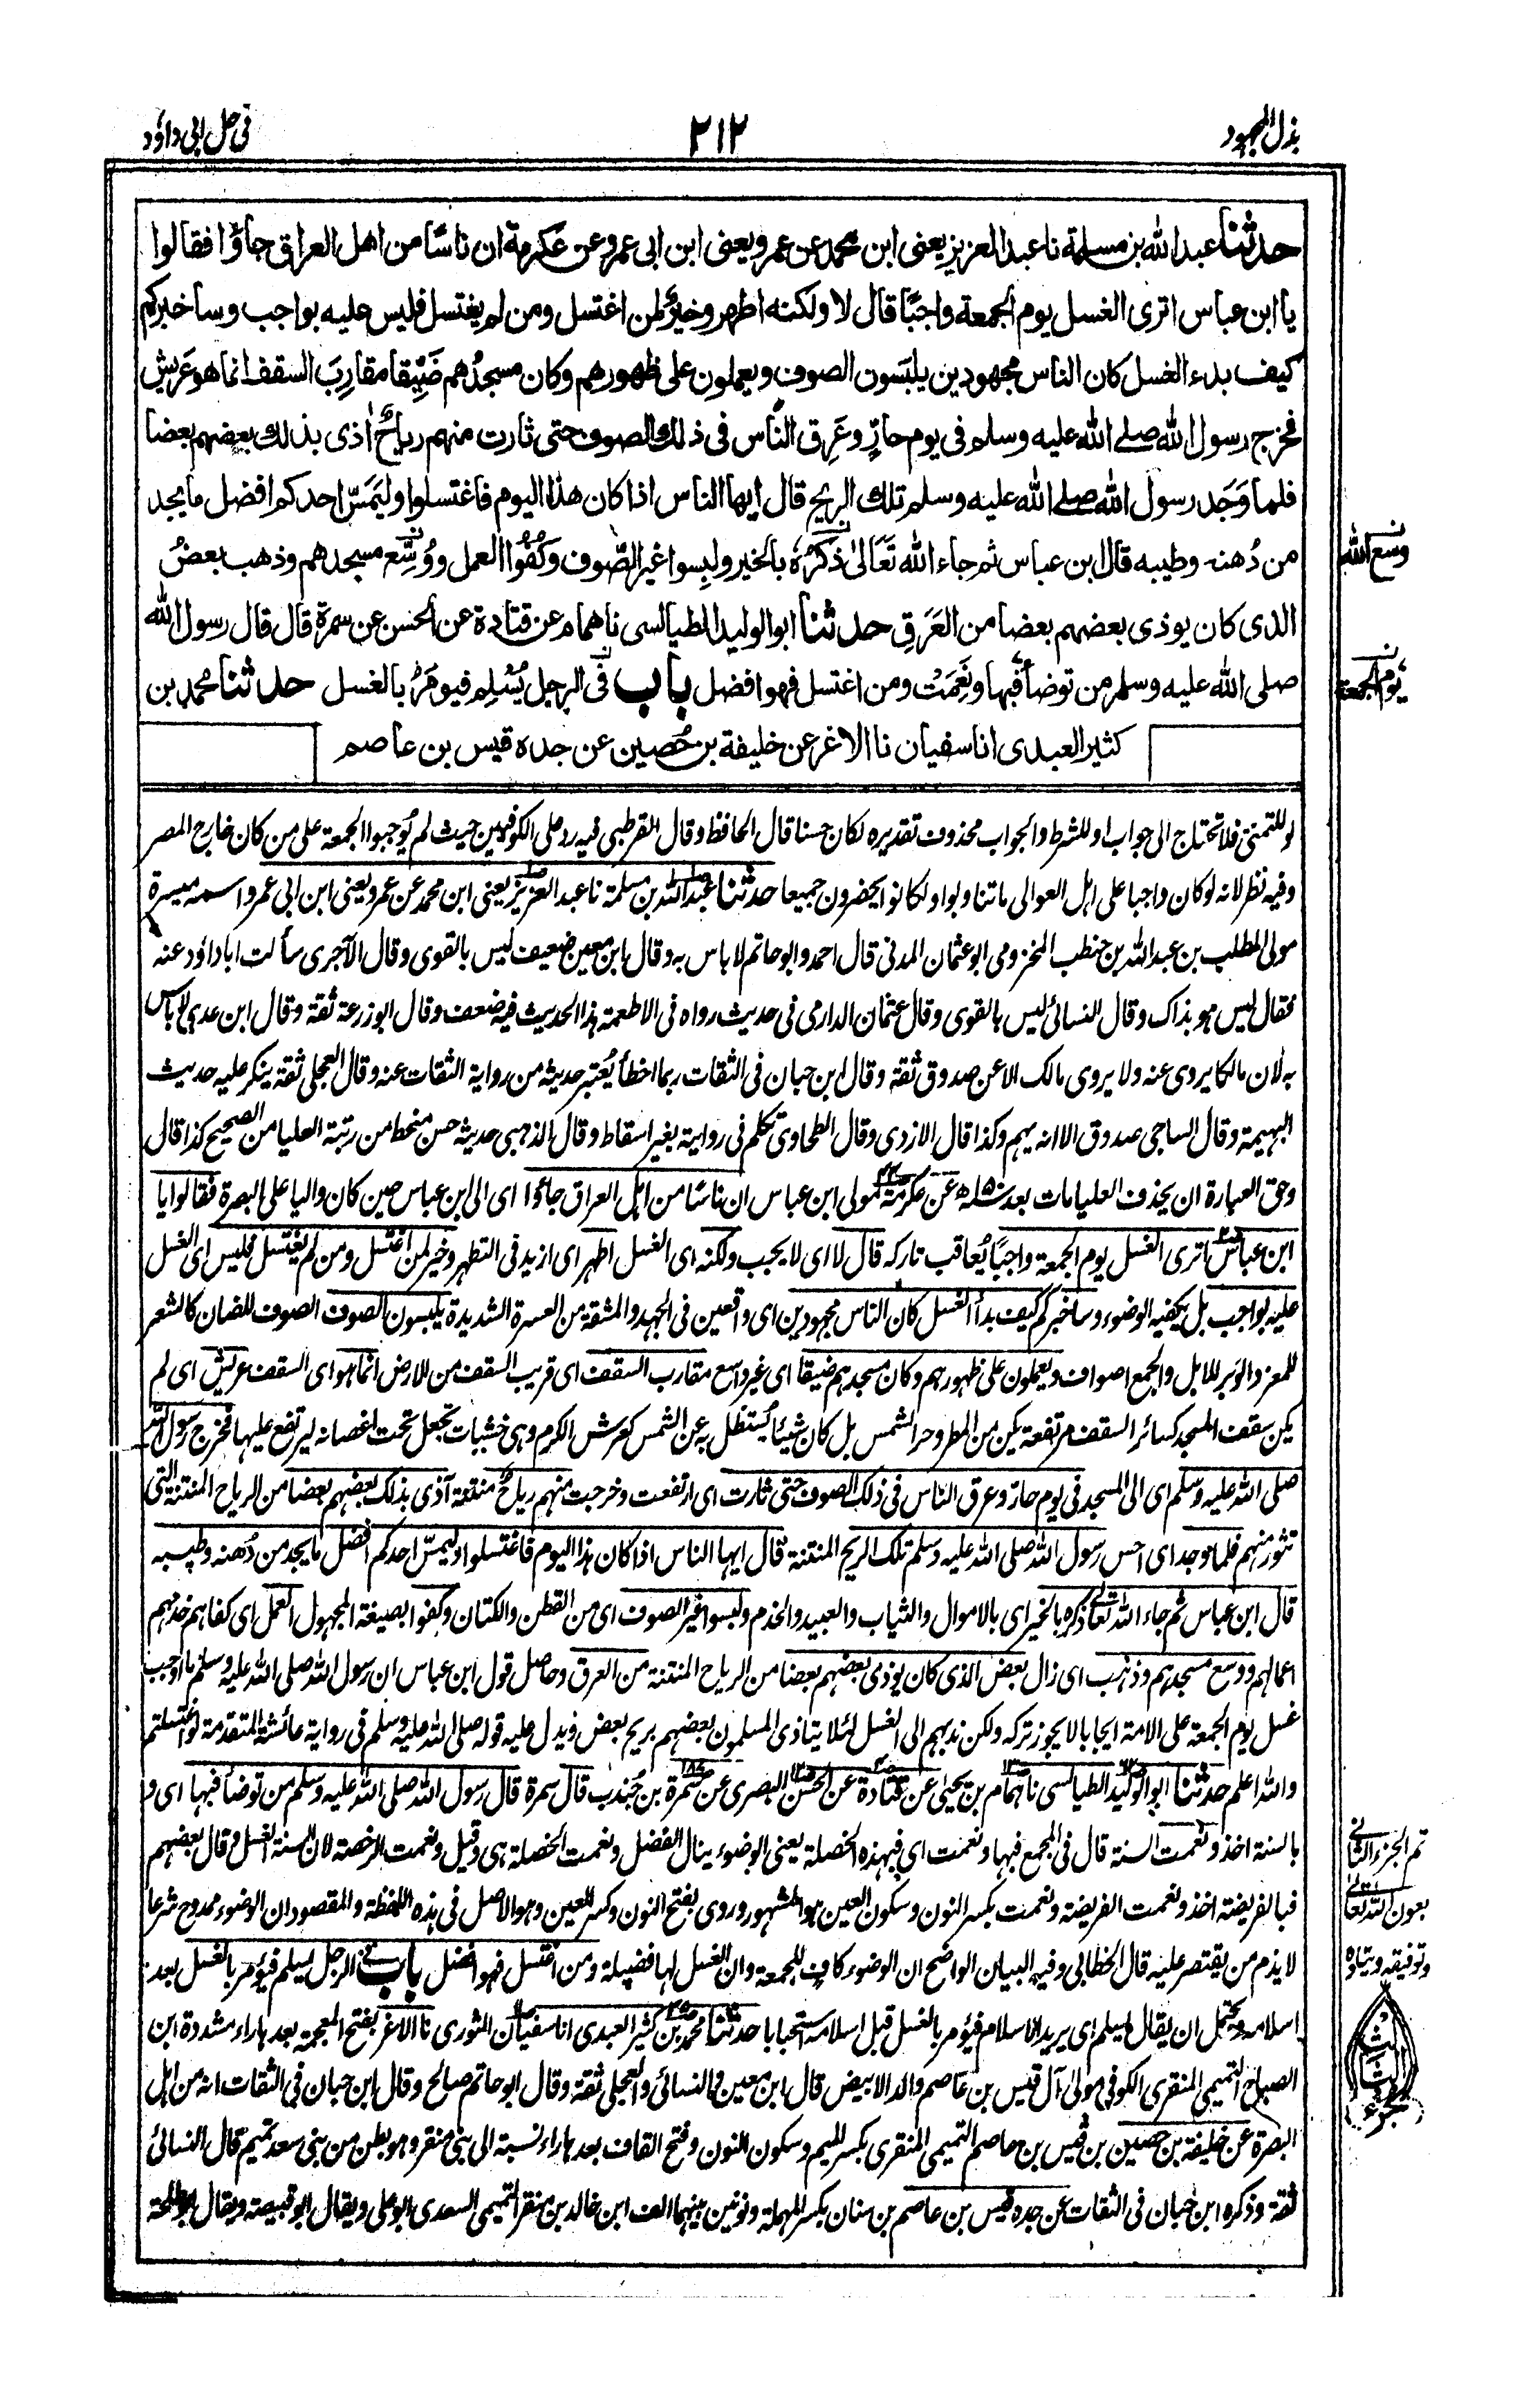 بذل المجهود
٢١٢
فی حل ابی داؤد
حدثنا عبد الله بن مسلمة نا عبد العزيز يعنى ابن محمد عن عمرو يعنى ابن ابى عمرو عن عكرمة ان ناسًا من اهل العراق جاؤا فقالوا
يا ابن عباس اترى الغسل يوم الجمعة واجبًا قال لا ولكنه اطهر وخيرٌ لمن اغتسل ومن لم يغتسل فليس عليه بواجب وساخبركم
كيف بدء الغسل كان الناس مجهودين يلبَسون الصوف ويعملون على ظهورهم وكان مسجدُهم ضَيِّقا مقارِبَ السقف انما هو عَرِيش
فخرج رسول الله صلے الله عليه وسلم فى يوم حارٍّ وعَرِق النّاس فى ذلك الصوف حتى ثارت منهم رياحٌ اٰذى بذلك بعضهم بعضا
فلما وَجَد رسول الله صلے الله عليه وسلم تلك الريح قال ايها الناس اذا كان هذا اليوم فاغتسلوا وليَمَسّ احدكم افضل ما يجد
من دُهنه وطيبه قال ابن عباس ثم جاء الله تَعَالىٰ ذكرُهٗ بالخير ولبِسوا غير الصّوف وكُفُوا العمل ووُسِّعَ مسجدهم وذهب بعضُ
وسع الله
الذى كان يوذى بعضهم بعضا من العَرَقِ حدثنا ابو الوليد الطيالسى نا همام عن قتادة عن الحسن عن سمرة قال قال رسول الله
صلى الله عليه وسلم من توضأ فبها ونَعِمَتْ ومن اغتسل فهو افضل باب فى الرجل يُسْلِم فيومَرُ بالغسل حدثنا محمد بن
يوم الجمعة
كثير العبدى انا سفيان نا الاغر عن خليفة بن حُصين عن جده قيس بن عاصم
لو للتمنى فلا تحتاج الى جواب او للشرط والجواب محذوف تقديره لكان حسنا قال الحافظ وقال القرطبى فيه رد على الكوفيين حيث لم يُوجبوا الجمعة على من كان خارج المصر
وفيه نظر لانه لو كان واجبا على اہل العوالى ما تناوبوا ولكانوا يحضرون جميعا حدثنا عبد الله بن مسلمة نا عبد العزيز يعنى ابن محمد عن عمرو يعنى ابن ابى عمرو واسمه ميسرة
مولى المطلب بن عبد الله بن حنطب المخزومى ابو عثمان المدنى قال احمد وابو حاتم لا باس به وقال ابن معين ضعيف ليس بالقوى وقال الآجرى سألت ابا داؤد عنه
فقال ليس ہو بذاك وقال النسائى ليس بالقوى وقال عثمان الدارمى فى حديث رواه فى الاطعمة ہذا الحديث فيه ضعف وقال ابو زرعة ثقة وقال ابن عدى لا باس
به لان مالكا يروى عنه ولا يروى مالك الا عن صدوق ثقة وقال ابن حبان فى الثقات ربما اخطأ يُعتبر حديثه من رواية الثقات عنه وقال العجلى ثقة ينكر عليه حديث
البہيمة وقال الساجى صدوق الا انه يہم وكذا قال الازدى وقال الطحاوى تكلم فى روايته بغير اسقاط وقال الذہبى حديثه حسن منحط من رتبة العليا من الصحيح كذا قال
وحق العبارة ان يحذف العليا مات بعد عن عكرمة مولى ابن عباس ان ناسًا من اہل العراق جاؤا اى الى ابن عباس حين كان واليا على البصرة فقالوا يا
ابن عباس اترى الغسل يوم الجمعة واجبًا يُعاقب تاركه قال لا اى لا يجب ولكنه اى الغسل اطہر اى ازيد فى التطہر وخير لمن اغتسل ومن لم يغتسل فليس اى الغسل
عليه بواجب بل يكفيه الوضوء وساخبركم كيف بدأ الغسل كان الناس مجہودين اى واقعين فى الجہد والمشقة من العسرة الشديدة يلبسون الصوف الصوف للضان كالشعر
للمعز والوبر للابل والجمع اصواف ويعملون على ظہورہم وكان مسجدہم ضيقا اى غير واسع مقارب السقف اى قريب السقف من الارض انما ہو اى السقف عريش اى لم
يكن سقف المسجد كسائر السقف مرتفعة يكن من المطر وحر الشمس بل كان شيئا يُستظل به عن الشمس كعرش الكرم وہى خشبات تجعل تحت اغصانه ليرتفع عليہا فخرج رسول الله
صلى الله عليه وسلم اى الى المسجد فى يوم حار وعرق الناس فى ذلك الصوف حتى ثارت اى ارتفعت وخرجت منہم رياحٌ منتنة آذى بذلك بعضہم بعضا من الرياح المنتنة التى
تثور منہم فلما وجد اى احس رسول الله صلى الله عليه وسلم تلك الريح المنتنة قال ايہا الناس اذا كان ہذا اليوم فاغتسلوا وليمسّ احدكم افضل ما يجد من دُهنه وطيبه
قال ابن عباس ثم جاء الله تعالى ذكره بالخير اى بالاموال والثياب والعبيد والخدم ولبسوا غير الصوف اى من القطن والكتان وكفوا بصيغة المجہول العمل اى كفاہم خدمہم
اعمالہم ووسع مسجدہم وذہب اى زال بعض الذى كان يوذى بعضہم بعضا من الرياح المنتنة من العرق وحاصل قول ابن عباس ان رسول الله صلى الله عليه وسلم ما اوجب
غسل يوم الجمعة على الامة ايجابا لا يجوز تركه ولكن ندبہم الى الغسل لئلا يتاذى المسلمون بعضہم بريح بعض ويدل عليه قوله صلى الله عليه وسلم فى رواية عائشة المتقدمة لو اغتسلتم
والله اعلم حدثنا ابو الوليد الطيالسى نا ہمام بن يحيى عن قتادة عن الحسن البصرى عن سمرة بن جُندب قال سمرة قال رسول الله صلى الله عليه وسلم من توضأ فبہا اى و
بالسنة اخذ ونعمت السنة قال فى المجمع فبہا ونعمت اى فبہذه الخصلة يعنى الوضوء ينال الفضل ونعمت الخصلة ہى وقيل ونعمت الرخصة لان السنة الغسل وقال بعضہم
تم الجزء الثانى
فبالفريضة اخذ ونعمت الفريضة ونعمت بكسر النون وسكون العين ہو المشہور وروى بفتح النون وكسر العين وہو الاصل فى ہذه اللفظة والمقصود ان الوضوء ممدوح شرعا
بعون الله تعالى
لا يذم من يقتصر عليه قال الخطابى وفيه البيان الواضح ان الوضوء كافٍ للجمعة وان الغسل لہا فضيلة ومن اغتسل فہو افضل باب فى الرجل يسلم فيؤمر بالغسل بعد
وتوفيقه ويتلوه
اسلامه ويحتمل ان يقال ليسلم اى يريد الاسلام فيؤمر بالغسل قبل اسلامه استحبابا حدثنا محمد بن كثير العبدى انا سفيان الثورى نا الاغر بفتح المعجمة بعدہا راء مشددة ابن
الجزء الثالث
الصباح التميمى المنقرى الكوفى مولى آل قيس بن عاصم والد الابيض قال ابن معين والنسائى والعجلى ثقة وقال ابو حاتم صالح وقال ابن حبان فى الثقات انه من اہل
البصرة عن خليفة بن حصين بن قيس بن عاصم التميمى المنقرى بكسر الميم وسكون النون وفتح القاف بعدہا راء نسبة الى بنى منقر وہو بطن من بنى سعد تميم قال النسائى
ثقة وذكره ابن حبان فى الثقات عن جده قيس بن عاصم بن سنان بكسر المہملة ونونين بينہما الف ابن خالد بن منقر التميمى السعدى ابو على ويقال ابو قبيصة ويقال ابو طلحة